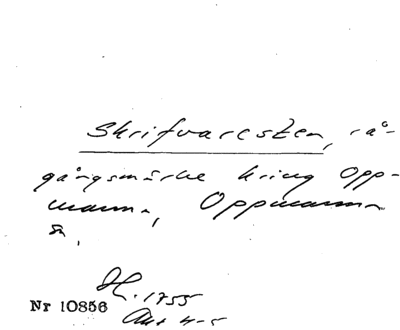 Skrifvaresten, rå-
gångsmärke kring Opp-
manna, Oppmanna
sn.
H. 1755
Akt 4-5
Nr 10856